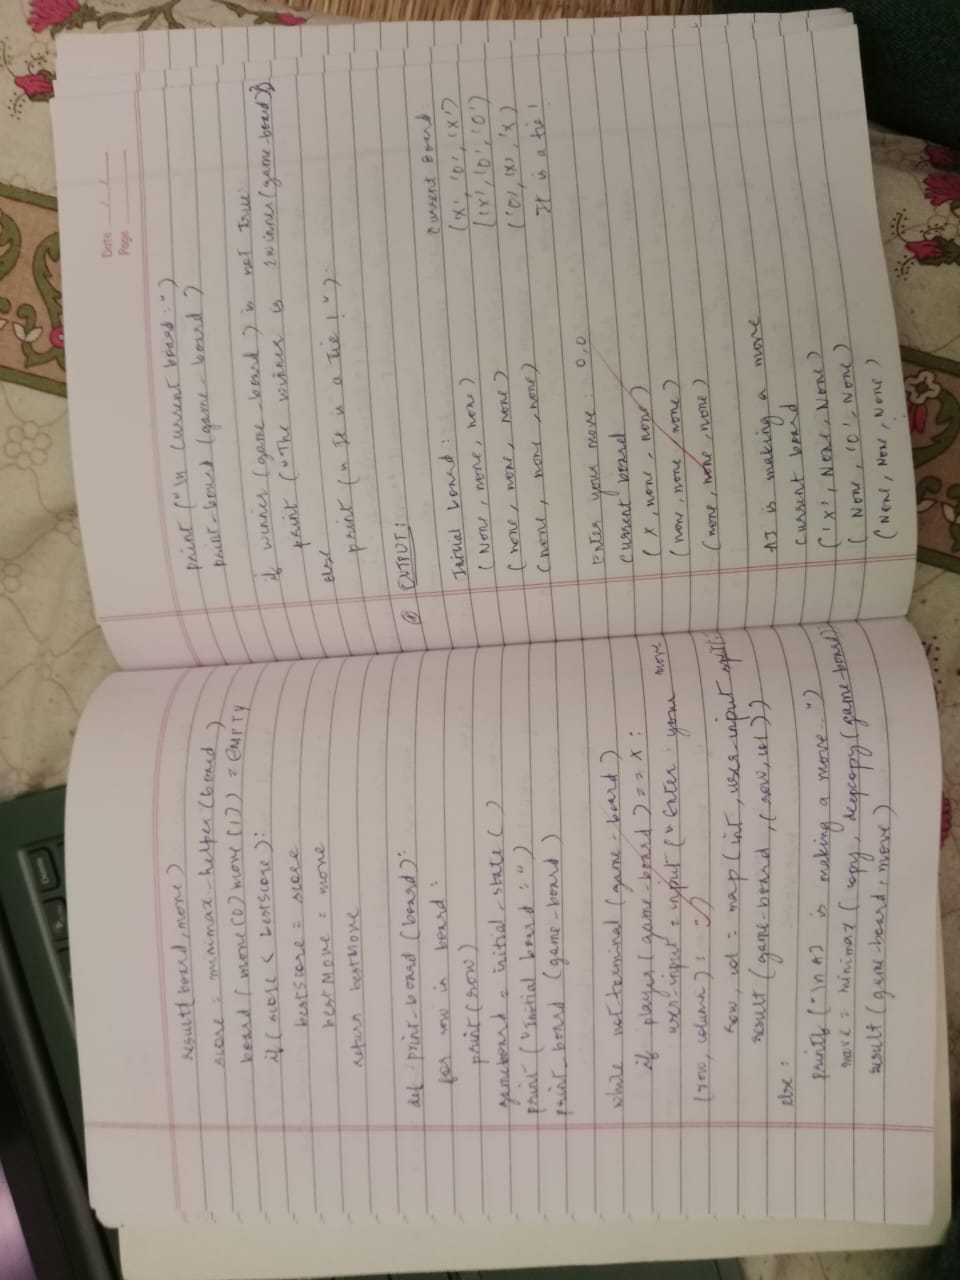 result(board, move)
score = minimax-helper(board)
board(move(0) move(1)) = EMPTY
if (score < bestscore):
bestscore = score
bestMove = move
return bestMove
def print-board (board):
for row in board:
print(row)
gameboard = initial-state()
print ("Initial board : ")
print_board (game-board)
while not terminal (game-board)
if player(game-board) == X :
user input = input ("Enter your move
(row, column) : ")
row, col = map (int, user-input split(
result (game-board, (row, col))
else :
printf ("\n AI is making a move...")
move = minimax (copy, deepcopy (game-board))
result (game-board, move)
Date / /
Page
print ("\n current board : ")
print-board (game-board)
if winner (game-board) is not true:
print ("The winner is winner (game-board)})
else
print (" It is a tie ! ").
OUTPUT:
Initial board :
(None, none, none)
(none, none, none)
(none, none, none)
Enter your move : 0,0
current board
(X, none, none)
(none, none, none)
(none, none, none)
AI is making a move
Current board
('X', None, None)
(None, 'O', None)
(None, None, None)
Current Board
('X', 'O', 'X')
('X', 'O', 'O')
('O', 'X', 'X)
It is a tie !